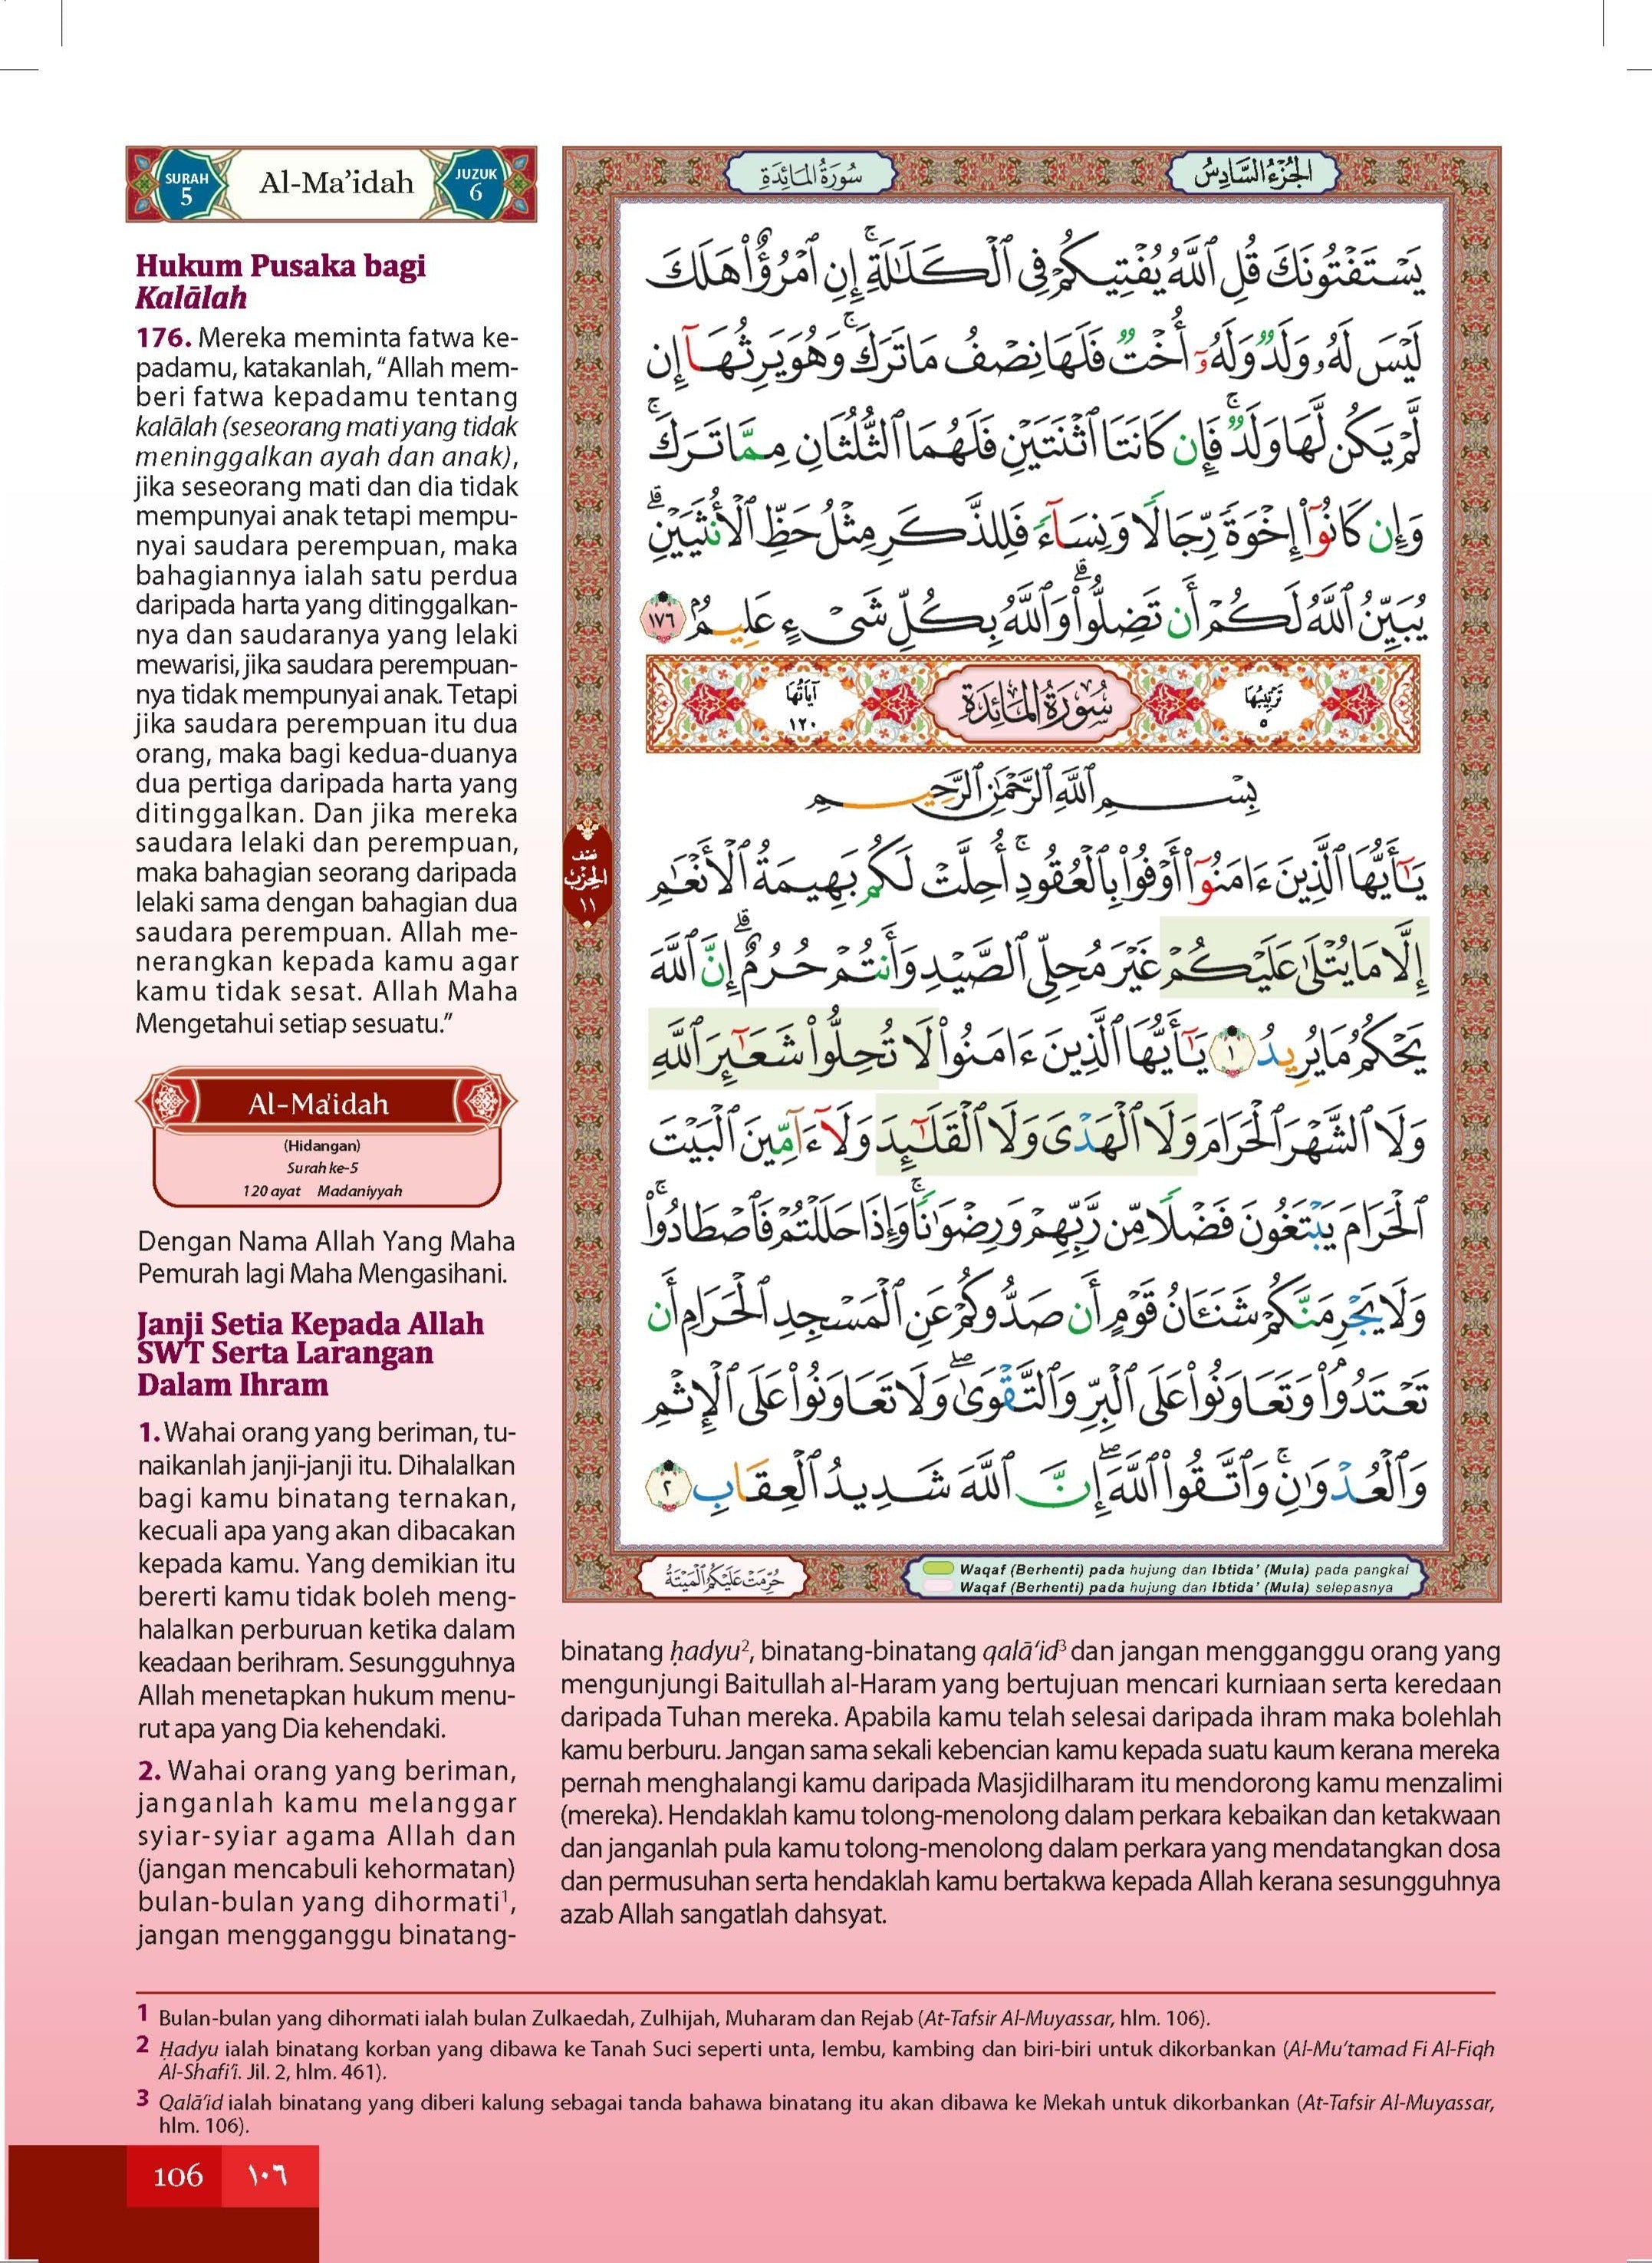 SURAH
5
Al-Ma’idah
JUZUK
6
Hukum Pusaka bagi
Kalālah
176. Mereka meminta fatwa ke-
padamu, katakanlah, “Allah mem-
beri fatwa kepadamu tentang
kalālah (seseorang mati yang tidak
meninggalkan ayah dan anak),
jika seseorang mati dan dia tidak
mempunyai anak tetapi mempu-
nyai saudara perempuan, maka
bahagiannya ialah satu perdua
daripada harta yang ditinggalkan-
nya dan saudaranya yang lelaki
mewarisi, jika saudara perempuan-
nya tidak mempunyai anak. Tetapi
jika saudara perempuan itu dua
orang, maka bagi kedua-duanya
dua pertiga daripada harta yang
ditinggalkan. Dan jika mereka
saudara lelaki dan perempuan,
maka bahagian seorang daripada
lelaki sama dengan bahagian dua
saudara perempuan. Allah me-
nerangkan kepada kamu agar
kamu tidak sesat. Allah Maha
Mengetahui setiap sesuatu.”
Al-Ma'idah
(Hidangan)
Surah ke-5
120 ayat Madaniyyah
Dengan Nama Allah Yang Maha
Pemurah lagi Maha Mengasihani.
Janji Setia Kepada Allah
SWT Serta Larangan
Dalam Ihram
1. Wahai orang yang beriman, tu-
naikanlah janji-janji itu. Dihalalkan
bagi kamu binatang ternakan,
kecuali apa yang akan dibacakan
kepada kamu. Yang demikian itu
bererti kamu tidak boleh meng-
halalkan perburuan ketika dalam
keadaan berihram. Sesungguhnya
Allah menetapkan hukum menu-
rut apa yang Dia kehendaki.
2. Wahai orang yang beriman,
janganlah kamu melanggar
syiar-syiar agama Allah dan
(jangan mencabuli kehormatan)
bulan-bulan yang dihormati¹,
jangan mengganggu binatang-
الجُزْءُ السَّادِسُ
سُورَةُ المَائِدَةِ
يَسْتَفْتُونَكَ قُلِ ٱللَّهُ يُفْتِيكُمْ فِى ٱلْكَلَـٰلَةِ ۚ إِنِ ٱمْرُؤٌا۟ هَلَكَ
لَيْسَ لَهُۥ وَلَدٌ وَلَهُۥٓ أُخْتٌ فَلَهَا نِصْفُ مَا تَرَكَ ۚ وَهُوَ يَرِثُهَآ إِن
لَّمْ يَكُن لَّهَا وَلَدٌ ۚ فَإِن كَانَتَا ٱثْنَتَيْنِ فَلَهُمَا ٱلثُّلُثَانِ مِمَّا تَرَكَ ۚ
وَإِن كَانُوٓا۟ إِخْوَةً رِّجَالًا وَنِسَآءً فَلِلذَّكَرِ مِثْلُ حَظِّ ٱلْأُنثَيَيْنِ ۗ
يُبَيِّنُ ٱللَّهُ لَكُمْ أَن تَضِلُّوا۟ ۗ وَٱللَّهُ بِكُلِّ شَىْءٍ عَلِيمٌۢ ١٧٦
تَرْتِيبُهَا
٥
سُورَةُ المَائِدَةِ
آيَاتُهَا
١٢٠
بِسْمِ ٱللَّهِ ٱلرَّحْمَـٰنِ ٱلرَّحِيمِ
نِصْف
الحِزْب
١١
يَـٰٓأَيُّهَا ٱلَّذِينَ ءَامَنُوٓا۟ أَوْفُوا۟ بِٱلْعُقُودِ ۚ أُحِلَّتْ لَكُم بَهِيمَةُ ٱلْأَنْعَـٰمِ
إِلَّا مَا يُتْلَىٰ عَلَيْكُمْ غَيْرَ مُحِلِّى ٱلصَّيْدِ وَأَنتُمْ حُرُمٌ ۗ إِنَّ ٱللَّهَ
يَحْكُمُ مَا يُرِيدُ ١ يَـٰٓأَيُّهَا ٱلَّذِينَ ءَامَنُوا۟ لَا تُحِلُّوا۟ شَعَـٰٓئِرَ ٱللَّهِ
وَلَا ٱلشَّهْرَ ٱلْحَرَامَ وَلَا ٱلْهَدْىَ وَلَا ٱلْقَلَـٰٓئِدَ وَلَآ ءَآمِّينَ ٱلْبَيْتَ
ٱلْحَرَامَ يَبْتَغُونَ فَضْلًا مِّن رَّبِّهِمْ وَرِضْوَٰنًا ۚ وَإِذَا حَلَلْتُمْ فَٱصْطَادُوا۟ ۚ
وَلَا يَجْرِمَنَّكُمْ شَنَـَٔانُ قَوْمٍ أَن صَدُّوكُمْ عَنِ ٱلْمَسْجِدِ ٱلْحَرَامِ أَن
تَعْتَدُوا۟ ۘ وَتَعَاوَنُوا۟ عَلَى ٱلْبِرِّ وَٱلتَّقْوَىٰ ۖ وَلَا تَعَاوَنُوا۟ عَلَى ٱلْإِثْمِ
وَٱلْعُدْوَٰنِ ۚ وَٱتَّقُوا۟ ٱللَّهَ ۖ إِنَّ ٱللَّهَ شَدِيدُ ٱلْعِقَابِ ٢
حُرِّمَتْ عَلَيْكُمُ الْمَيْتَةُ
Waqaf (Berhenti) pada hujung dan Ibtida’ (Mula) pada pangkal
Waqaf (Berhenti) pada hujung dan Ibtida’ (Mula) selepasnya
binatang ḥadyu², binatang-binatang qalā’id³ dan jangan mengganggu orang yang
mengunjungi Baitullah al-Haram yang bertujuan mencari kurniaan serta keredaan
daripada Tuhan mereka. Apabila kamu telah selesai daripada ihram maka bolehlah
kamu berburu. Jangan sama sekali kebencian kamu kepada suatu kaum kerana mereka
pernah menghalangi kamu daripada Masjidilharam itu mendorong kamu menzalimi
(mereka). Hendaklah kamu tolong-menolong dalam perkara kebaikan dan ketakwaan
dan janganlah pula kamu tolong-menolong dalam perkara yang mendatangkan dosa
dan permusuhan serta hendaklah kamu bertakwa kepada Allah kerana sesungguhnya
azab Allah sangatlah dahsyat.
1 Bulan-bulan yang dihormati ialah bulan Zulkaedah, Zulhijah, Muharam dan Rejab (At-Tafsir Al-Muyassar, hlm. 106).
2 Ḥadyu ialah binatang korban yang dibawa ke Tanah Suci seperti unta, lembu, kambing dan biri-biri untuk dikorbankan (Al-Mu’tamad Fi Al-Fiqh
Al-Shafi’i. Jil. 2, hlm. 461).
3 Qalā’id ialah binatang yang diberi kalung sebagai tanda bahawa binatang itu akan dibawa ke Mekah untuk dikorbankan (At-Tafsir Al-Muyassar,
hlm. 106).
106 ١٠٦